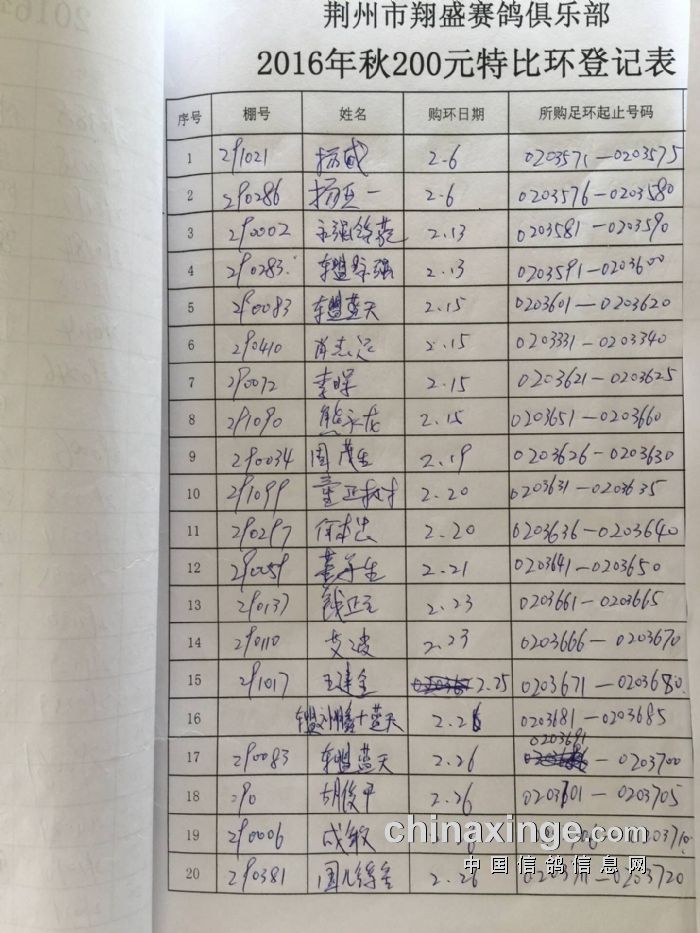 荆州市翔盛赛鸽俱乐部
2016年秋200元特比环登记表
序号 棚号 姓名 购环日期 所购足环起止号码
1 291021 杨威 2.6 0203571—0203575
2 290286 杨 一 2.6 0203576—0203580
3 290002 2.13 0203581—0203590
4 290283 车盟 强 2.13 0203591—0203600
5 290083 车盟蓝天 2.15 0203601—0203620
6 290410 肖志远 2.15 0203331—0203340
7 290072 李 2.15 0203621—0203625
8 291090 熊 龙 2.15 0203651—0203660
9 290034 周茂生 2.19 0203626—0203630
10 291099 董正 2.20 0203631—0203635
11 290297 何 2.20 0203636—0203640
12 290059 生 2.21 0203641—0203650
13 290137 钱正 2.23 0203661—0203665
14 290110 艾波 2.23 0203666—0203670
15 291017 王建 2.25 0203671—0203680
16 车盟刘 十蓝天 2.26 0203681—0203685
17 290083 车盟蓝天 2.26 0203691—0203700
18 290 胡俊平 2.26 0203701—0203705
19 290006 成敏
20 290381 周 2.26 0203720
chinaxinge.com
中国信鸽信息网